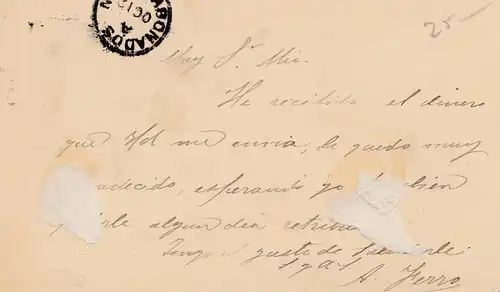 25-
ABONADOS
OC12
A
Muy Sr. Mio.
He recibido el dinero
que Vd me envia, le quedo muy
adecido, esperando yo tambien
irle algun dia
Tengo el gusto de
A. Ferro